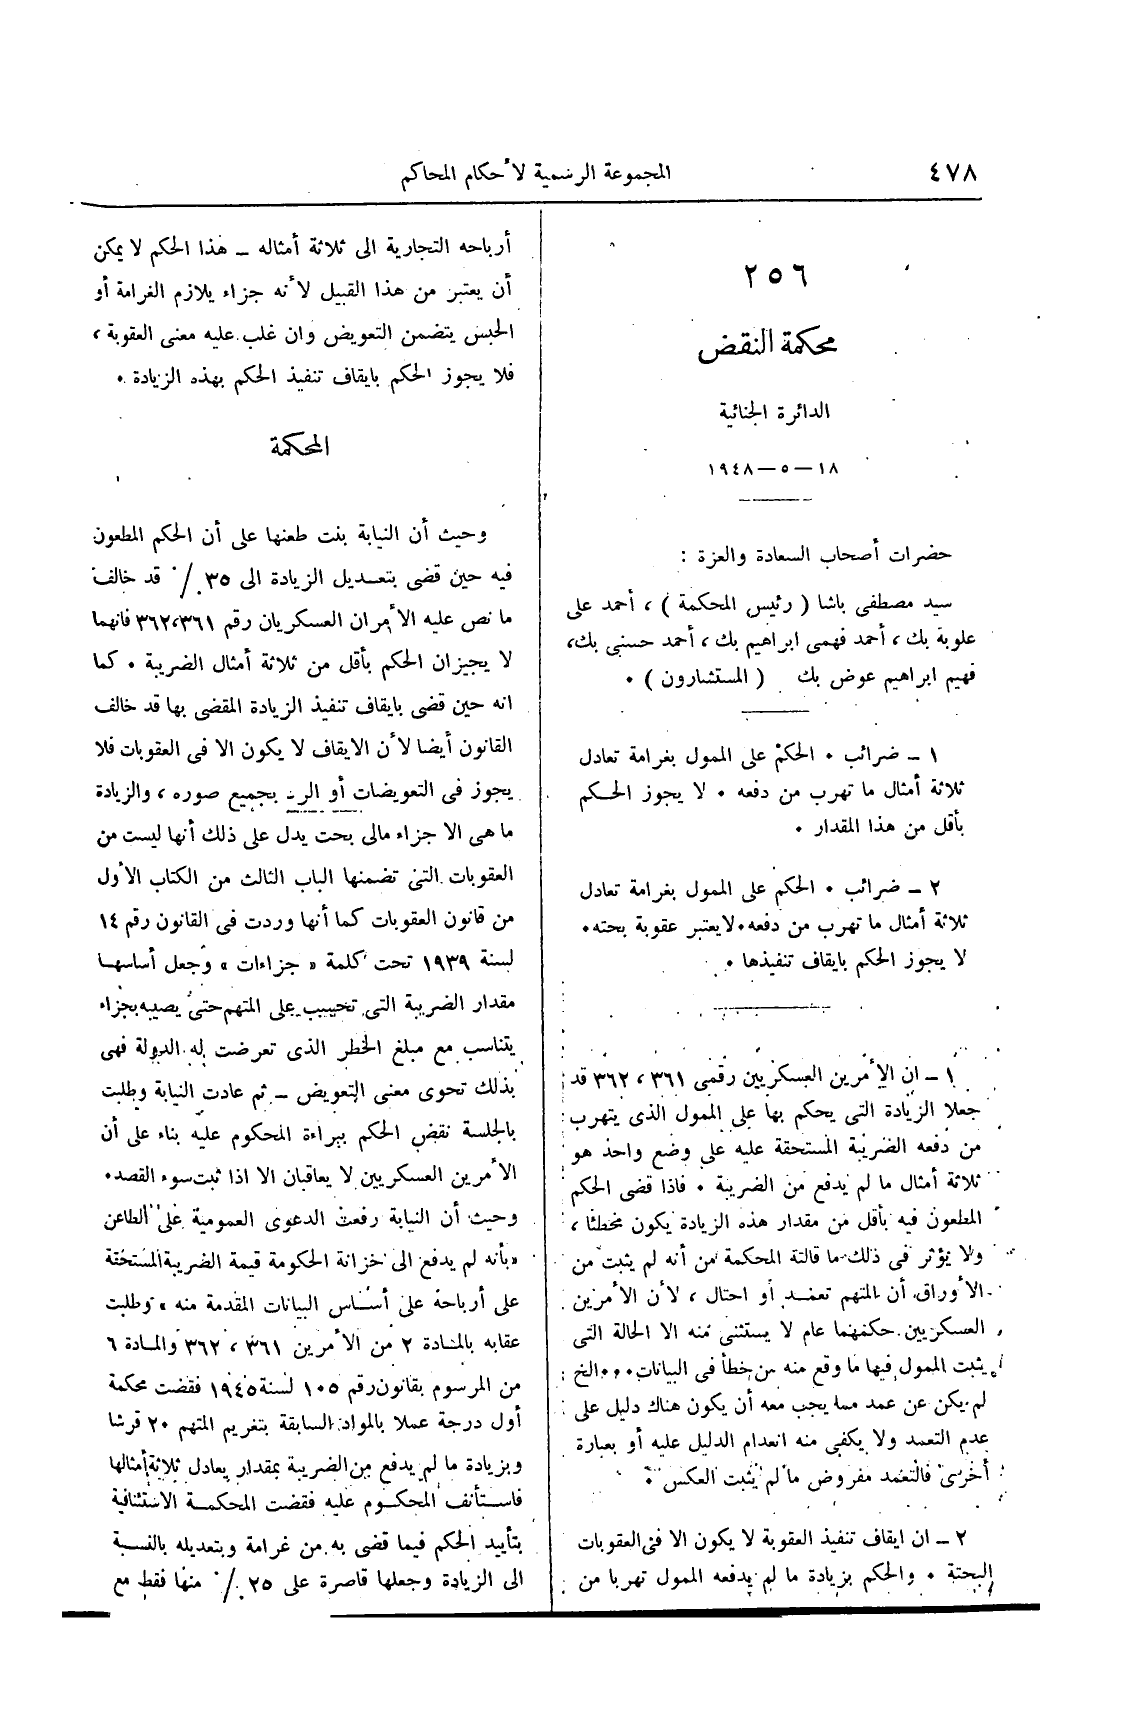 ٤٧٨
المجموعة الرسمية لأحكام المحاكم
٢٥٦
محكمة النقض
الدائرة الجنائية
١٨ — ٥ — ١٩٤٨
حضرات أصحاب السعادة والعزة :
سيد مصطفى باشا ( رئيس المحكمة ) ، أحمد على
علوبة بك ، أحمد فهمى ابراهيم بك ، أحمد حسنى بك ،
فهيم ابراهيم عوض بك ( المستشارون ) .
١ ــ ضرائب . الحكم على الممول بغرامة تعادل
ثلاثة أمثال ما تهرب من دفعه . لا يجوز الحكم
بأقل من هذا المقدار .
٢ ــ ضرائب . الحكم على الممول بغرامة تعادل
ثلاثة أمثال ما تهرب من دفعه . لا يعتبر عقوبة بحته .
لا يجوز الحكم بايقاف تنفيذها .
١ ــ ان الأمرين العسكريين رقمى ٣٦١ ، ٣٦٢ قد
جعلا الزيادة التى يحكم بها على الممول الذى يتهرب
من دفعه الضريبة المستحقة عليه على وضع واحد هو
ثلاثة أمثال ما لم يدفع من الضريبة . فاذا قضى الحكم
المطعون فيه بأقل من مقدار هذه الزيادة يكون مخطئا ،
ولا يؤثر فى ذلك ما قالته المحكمة من أنه لم يثبت من
الأوراق أن المتهم تعمد أو احتال ، لأن الأمرين
العسكريين حكمهما عام لا يستثنى منه الا الحالة التى
يثبت الممول فيها ما وقع منه من خطأ فى البيانات ... الخ
لم يكن عن عمد مما يجب معه أن يكون هناك دليل على
عدم التعمد ولا يكفى منه انعدام الدليل عليه أو بعبارة
أخرى فالتعمد مفروض ما لم يثبت العكس .
٢ ــ ان ايقاف تنفيذ العقوبة لا يكون الا فى العقوبات
البحتة . والحكم بزيادة ما لم يدفعه الممول تهربا من
أرباحه التجارية الى ثلاثة أمثاله ــ هذا الحكم لا يمكن
أن يعتبر من هذا القبيل لأنه جزاء يلازم الغرامة أو
الحبس يتضمن التعويض وان غلب عليه معنى العقوبة ،
فلا يجوز الحكم بايقاف تنفيذ الحكم بهذه الزيادة .
المحكمة
وحيث أن النيابة بنت طعنها على أن الحكم المطعون
فيه حين قضى بتعديل الزيادة الى ٣٥ ٪ قد خالف
ما نص عليه الأمران العسكريان رقم ٣٦١ ، ٣٦٢ فانهما
لا يجيزان الحكم بأقل من ثلاثة أمثال الضريبة . كما
انه حين قضى بايقاف تنفيذ الزيادة المقضى بها قد خالف
القانون أيضا لأن الايقاف لا يكون الا فى العقوبات فلا
يجوز فى التعويضات أو الرد بجميع صوره ، والزيادة
ما هى الا جزاء مالى بحت يدل على ذلك أنها ليست من
العقوبات التى تضمنها الباب الثالث من الكتاب الأول
من قانون العقوبات كما أنها وردت فى القانون رقم ١٤
لسنة ١٩٣٩ تحت كلمة « جزاءات » وجعل أساسها
مقدار الضريبة التى تحتسب على المتهم حتى يصيبه بجزاء
يتناسب مع مبلغ الخطر الذى تعرضت له الدولة فهى
بذلك تحوى معنى التعويض ــ ثم عادت النيابة وطلبت
بالجلسة نقض الحكم ببراءة المحكوم عليه بناء على أن
الأمرين العسكريين لا يعاقبان الا اذا ثبت سوء القصد .
وحيث أن النيابة رفعت الدعوى العمومية على الطاعن
« بأنه لم يدفع الى خزانة الحكومة قيمة الضريبة المستحقة
على أرباحه على أساس البيانات المقدمة منه » وطلبت
عقابه بالمادة ٢ من الأمرين ٣٦١ ، ٣٦٢ والمادة ٦
من المرسوم بقانون رقم ١٠٥ لسنة ١٩٤٥ فقضت محكمة
أول درجة عملا بالمواد السابقة بتغريم المتهم ٢٠ قرشا
وبزيادة ما لم يدفع من الضريبة بمقدار يعادل ثلاثة أمثالها
فاستأنف المحكوم عليه فقضت المحكمة الاستئنافية
بتأييد الحكم فيما قضى به من غرامة وبتعديله بالنسبة
الى الزيادة وجعلها قاصرة على ٢٥ ٪ منها فقط مع